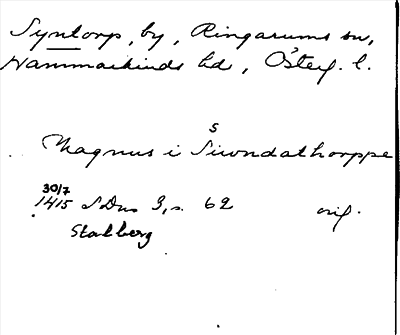 Syntorp, by, Ringarums sn,
Hammarkinds hd, Österg. l.
s
Magnus i Siwndathorppe
30/7
1415 SDns 3, s. 62 orig.
Stalberg